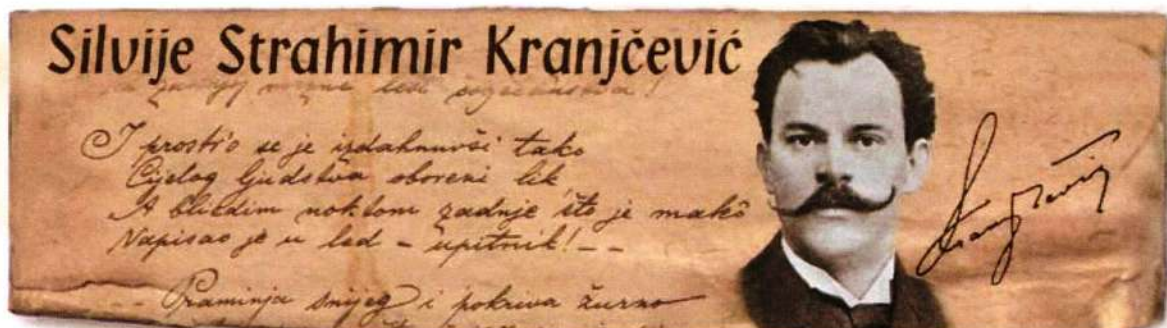 Silvije Strahimir Kranjčević
led
I prosti'o se je izdahnuvši tako
Cijelog ljudstva oboreni lik
A bliedim noktom zadnje što je makô
Napisao je u led - upitnik! - -
- - Praminja snijeg i pokriva žurno